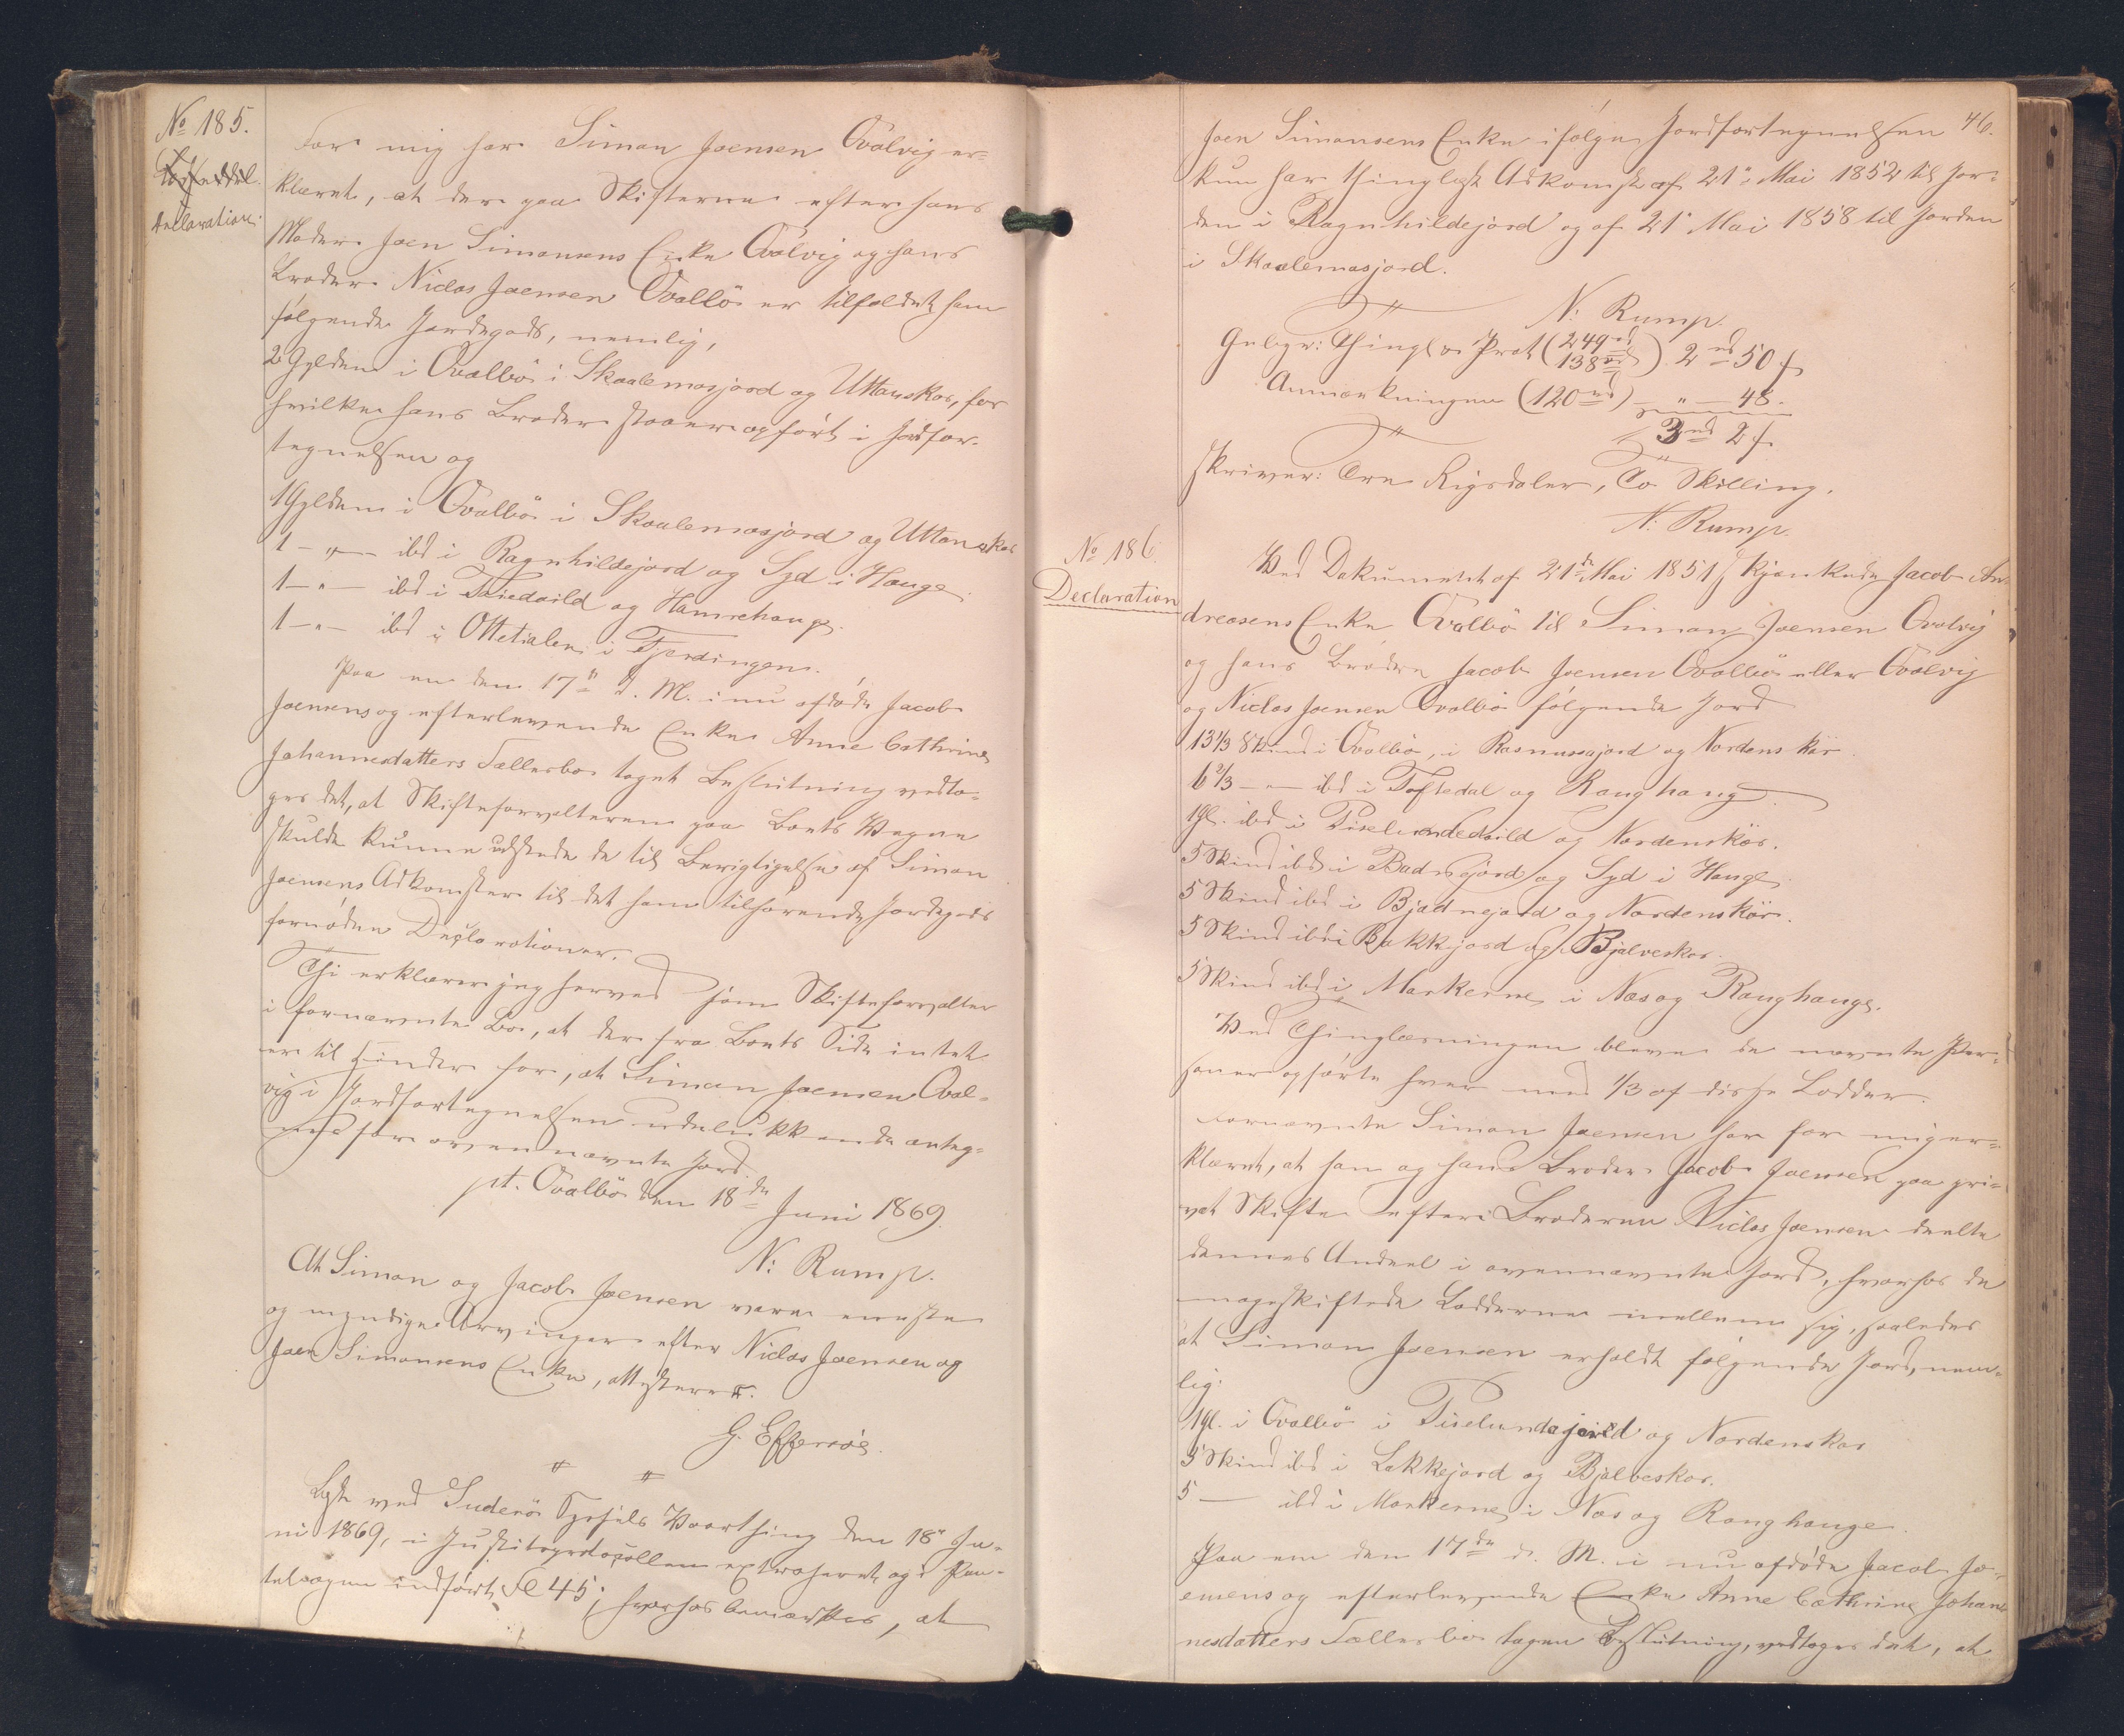 No 185.
Declaration
For mig har Simon Joensen Qvalvig er-
klæret, at der paa Skifterne efter hans
Moder Joen Simonsens Enke Qvalvig og hans
Broder Niclas Joensen Qvalbö er tilfaldet ham
følgende Jordegods, nemlig,
2 Gylden i Qvalbö i Skaalemosjord og Uttanskor, for
hvilke hans Broder staaer opført i Jordfor-
tegnelsen og
1 Gylden i Qvalbö i Skaalemosjord og Uttanskor
1 – " – ibd i Ragnhildejord og Syd i Hauge
1 – " – ibd i og Hamrehauge.
1 – " – ibd i Ottetialen i Fjerdingen.
Paa en den 17de d. M. i nu afdøde Jacob
Joensens og efterlevende Enke Anne Cathrine
Johannesdatters Fællesbo taget Beslutning vedto-
ges det, at Skifteforvalteren paa Boets Vegne
skulde kunne udstede de til Berigtigelse af Simon
Joensens Adkomster til det ham tilhørende Jordegods
fornødne Declarationer.
Thi erklærer jeg herved som Skifteforvalter
i fornævnte Bo, at der fra Boets Side intet
er til Hinder for, at Simon Joensen Qval-
vig i Jordfortegnelsen udelukkende anteg-
nes for ovennævnte Jord.
pt. Qvalbö den 18de Juni 1869.
N: Rump.
At Simon og Jacob Joensen vare eneste
og myndige Arvinger efter Niclas Joensen og
Joen Simonsens Enke, attesteres.
G. Effersöe.
Læst ved Suderö Syssels Vaarthing den 18de Ju-
ni 1869, i Justitsprotocollen extraheret og i Pan-
tebogen indført Fol 45; hvorhos bemærkes, at
46.
Joen Simonsens Enke ifølge Jordfortegnelsen
kun har thinglæst Adkomst af 21de Mai 1852 til Jor-
den i Ragnhildejord og af 21de Mai 1858 til Jorden
i Skaalemosjord.
N: Rump.
Gebyr: Thingl. Prot (249 rd
138 rd) 2 rd 50 s
Anmærkningen (120 rd) – " – 48.
3 rd 2 s.
skriver: Tre Rigsdaler, To Skilling.
N: Rump.
No 186
Declaration
Ved Dokument af 21de Mai 1851 skjænkede Jacob An-
dreasens Enke Qvalbö til Simon Joensen Qvalvig
og hans Brødre Jacob Joensen Qvalbö eller Qvalvig
og Niclas Joensen Qvalbö følgende Jord
13 1/3 Skind i Qvalbö, i Rasmussajord og Nordenskor
6 2/3 – " – ibd i Toftedal og Ranghauge.
1 Gl. ibd i og Nordenskor.
5 Skind ibd i og Syd i Hauge
5 Skind ibd i Bjadnejord og Nordenskör.
5 Skind ibd i Bakkjord og Bjalveskor.
5 Skind ibd i Markerne i Nes og Ranghauge.
Ved Thinglæsningen bleve de nævnte Per-
soner opførte hver med 1/3 af disse Lodder.
Fornævnte Simon Joensen har for mig er-
klæret, at han og hans Broder Jacob Joensen paa pri-
vat Skifte efter Broderen Niclas Joensen deelte
dennes Andeel i ovennævnte Jord, hvorhos de
mageskiftede Lodderne imellem sig, saaledes
at Simon Joensen erholdt følgende Jord, nem-
lig:
1 Gl. i Qvalbö i og Nordenskor
5 Skind ibd i Bakkejord og Bjalveskor.
5 – ibd i Markerne i Nes og Ranghauge.
Paa en den 17de d. M. i nu afdøde Jacob Jo-
ensens og efterlevende Enke Anne Cathrine Johan-
nesdatters Fællesbo tagen Beslutning, vedtoges det, at